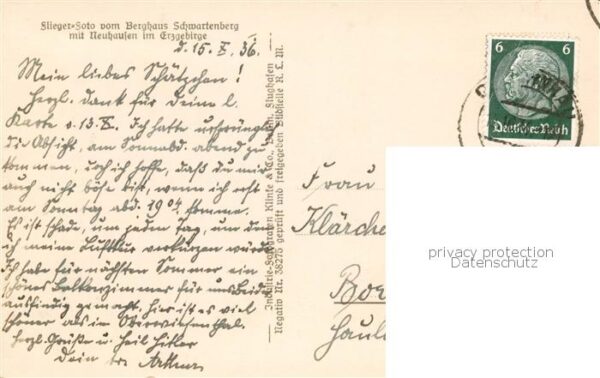 Flieger-Foto vom Berghaus Schwartenberg
mit Neuhausen im Erzgebirge
d. 15. X. 36.
Mein liebes Schätzchen!
Herzl. Dank für Deine l.
Karte v. 13. X. Ich hatte ursprüngl.
die Absicht, am Sonnabd. abend zu
kommen, doch ich hoffe, daß du mir
auch nicht böse bist, wenn ich erst
am Sonntag abd. 19 04 komme.
Es ist schade, um jeden Tag, um den
ich meine Luftkur verkürzen würde
Ich habe für nächsten Sommer ein
schönes Balkonzimmer für uns Beide
ausfindig gemacht, hier ist es viel
schöner als in Oberwiesenthal.
Herzl. Grüße u. Heil Hitler
Dein Arthur
Industrie-Fotografen Klinke & Co., Berlin, Flughafen
Negativ Nr. 38275 geprüft und freigegeben Bildstelle R. L. M.
6 6
Deutsches Reich
Frau
Klärche
Bor
privacy protection
Datenschutz